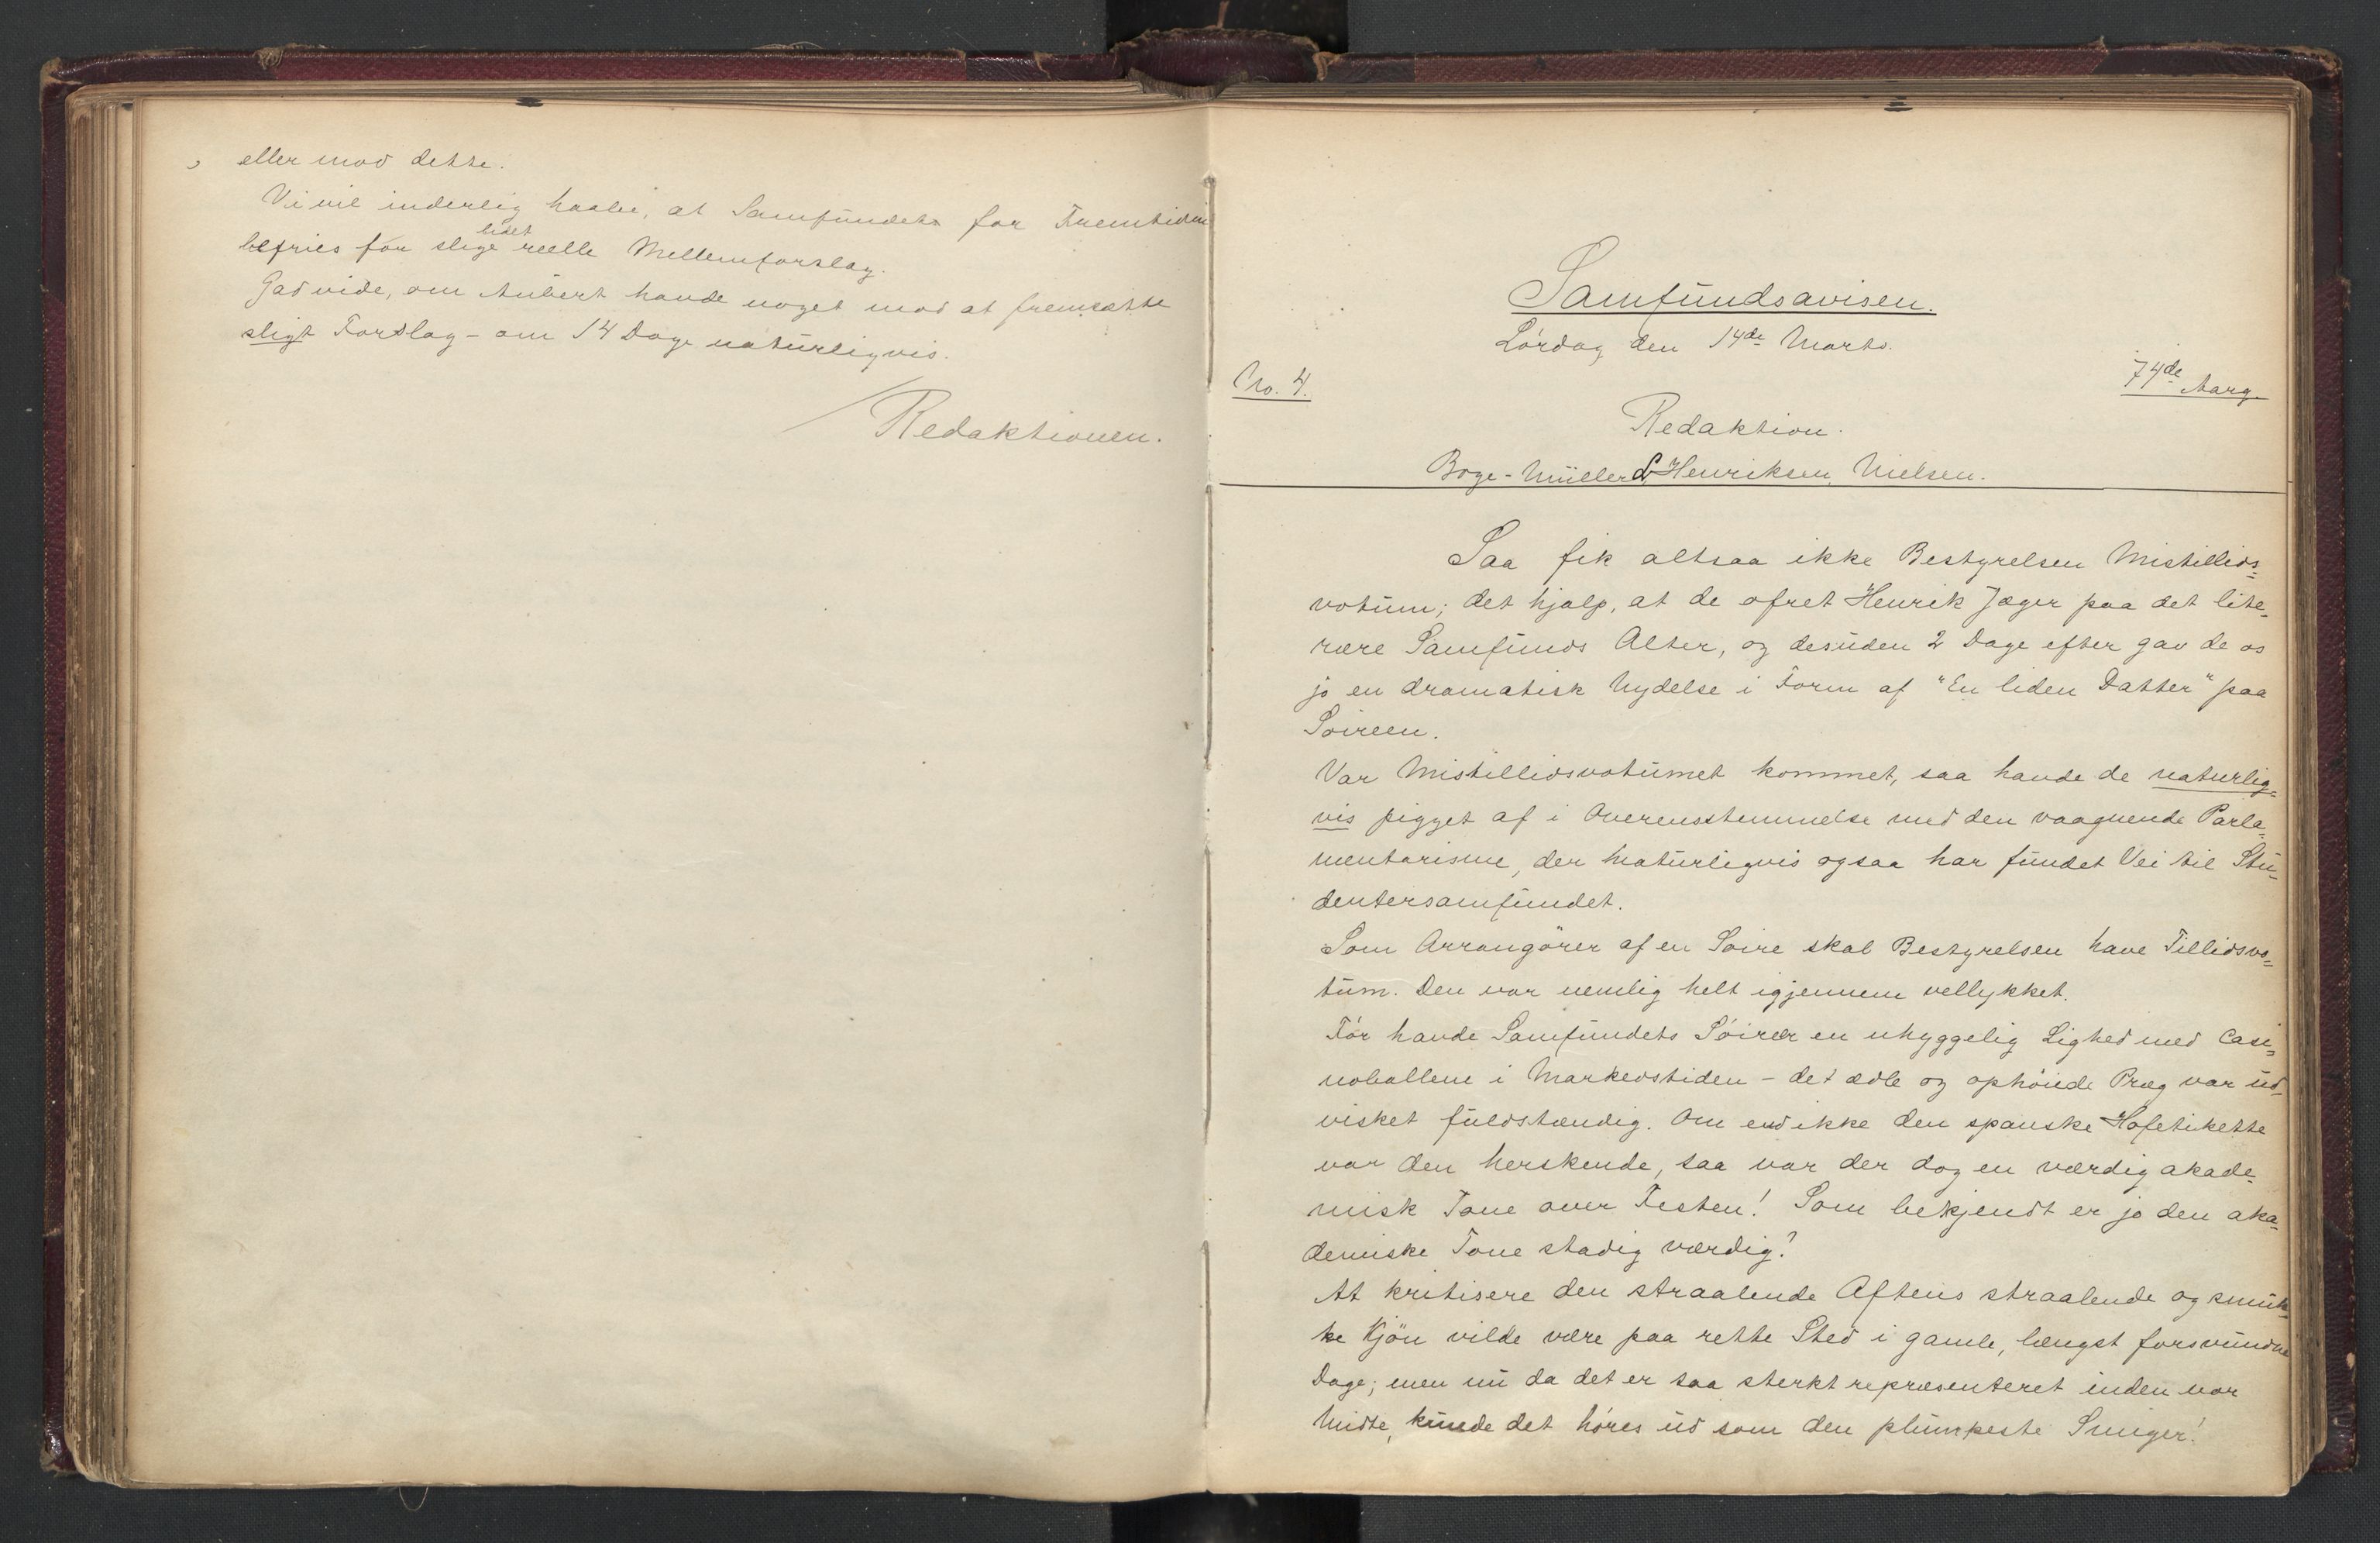 eller mod dette.
Vi vil inderlig haabe, at Samfundets for Fremtiden
lidet
befries for slige reelle Mellemforslag.
Gad vide, om Aubert havde noget mod at fremsætte
sligt Forslag - om 14 Dage naturligvis.
Redaktionen.
Samfundsavisen.
Lördag den 14de Marts.
No. 4.
74de Aarg.
Redaktion.
Boye-Müller & Henriksen, Nielsen.
Saa fik altsaa ikke Bestyrelsen Mistillids=
votum; det hjalp, at de ofret Henrik Jæger paa det lite-
rære Samfunds Alter, og desuden 2 Dage efter gav de os
jo en dramatisk Nydelse i Form af "En liden Datter" paa
Soireen.
Var Mistillidsvotumet kommet, saa havde de naturlig=
vis pigget af i Overensstemmelse med den vaagnende Parla=
mentarisme, der naturligvis ogsaa har fundet Vei til Stu=
dentersamfundet.
Som Arrangörer af en Soire skal Bestyrelsen have Tillidsvo=
tum. Den var nemlig helt igjennem vellykket.
För havde Samfundets Soireer en uhyggelig Lighed med Casi=
noballene i Markedstiden - det ædle og ophöiede Præg var ud=
visket fuldstændig. Om end ikke den spanske Hofetikette
var den herskende, saa var der dog en værdig akade=
misk Tone over Festen! Som bekjendt er jo den aka=
demiske Tone stadig værdig?
At kritisere den straalende Aftens straalende og smuk=
ke Kjön vilde være paa rette Sted i gamle, længst forsvundne
Dage; men nu da det er saa sterkt repræsenteret inden vor
Midte, kunde det höres ud som den plumpeste Smiger!